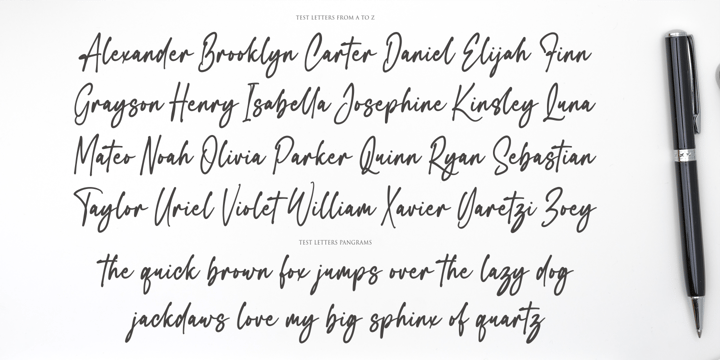 TEST LETTERS FROM A TO Z
Alexander Brooklyn Carter Daniel Elijah Finn
Grayson Henry Isabella Josephine Kinsley Luna
Mateo Noah Olivia Parker Quinn Ryan Sebastian
Taylor Uriel Violet William Xavier Yaretzi Zoey
TEST LETTERS PANGRAMS
the quick brown fox jumps over the lazy dog
jackdaws love my big sphinx of quartz